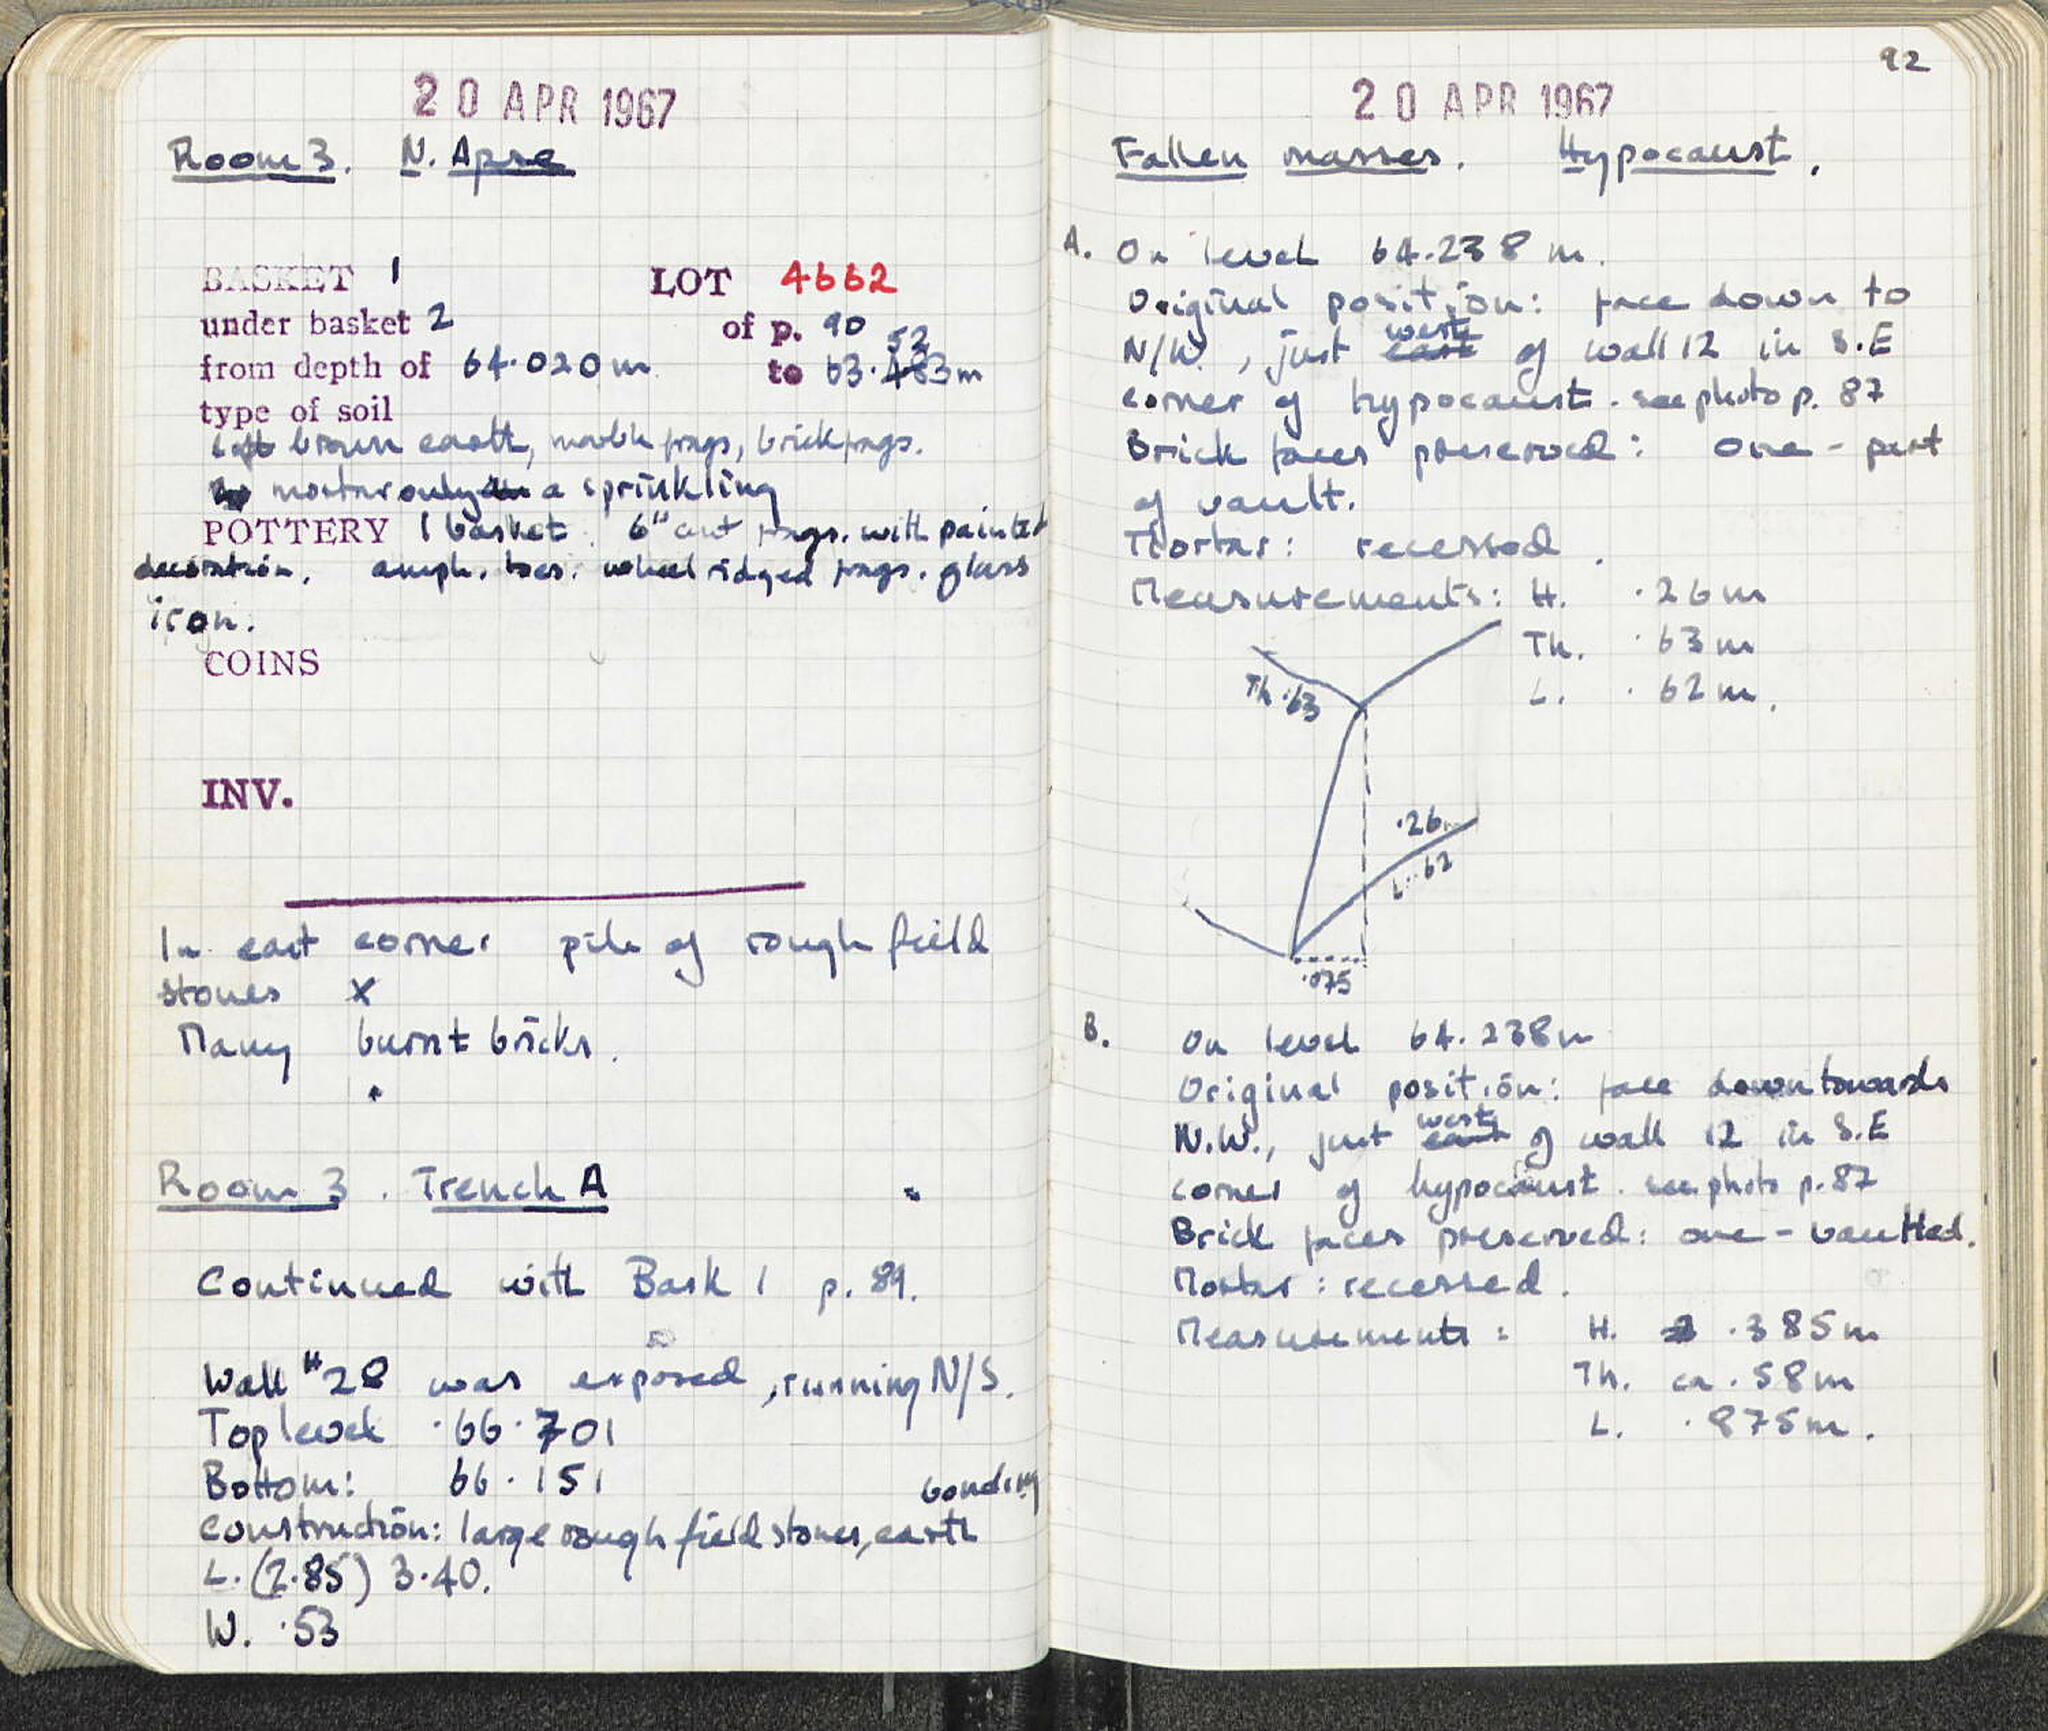 20 APR 1967
Room 3. N. Apse
BASKET 1 LOT 4662
under basket 2 of p. 90
from depth of 64.020m to 63.483m 52
type of soil
soft brown earth, marble frags, brick frags.
mortar only a sprinkling
POTTERY 1 basket. 6" cut frags. with painted
decoration. amph. toes. wheel ridged frags. glass
iron.
COINS
INV.
In east corner pile of rough field
stones x
Many burnt bricks.
Room 3. Trench A
Continued with Bask 1 p. 89.
Wall #28 was exposed, running N/S.
Top level .66.701
Bottom: 66.151
Construction: large rough field stones, earth bonding
L. (2.85) 3.40.
W. .53
92
20 APR 1967
Fallen masses. Hypocaust.
A. On level 64.238 m.
Original position: face down to
N/W., just east west of wall 12 in S.E
corner of hypocaust. see photo p. 87
Brick faces preserved: one - part
of vault.
Mortar: recessed.
Measurements: H. .26m
Th. .63m
L. .62m.
Th .63
.26
L. .62
.075
B. On level 64.238m
Original position: face down towards
N.W., just east west of wall 12 in S.E
corner of hypocaust. see photo p. 87
Brick faces preserved: one - vaulted.
Mortar: recessed.
Measurements: H. .385m
Th. ca .58m
L. .875m.